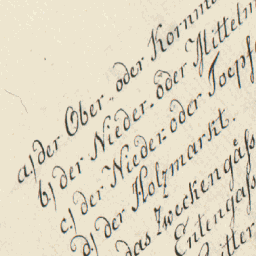 a.) der Ober- oder Kornm
b.) der Nieder- oder Mittelm
c.) der Nieder- oder Toepf
d.) der Holzmarkt.
das Zweckengäß
Entengass